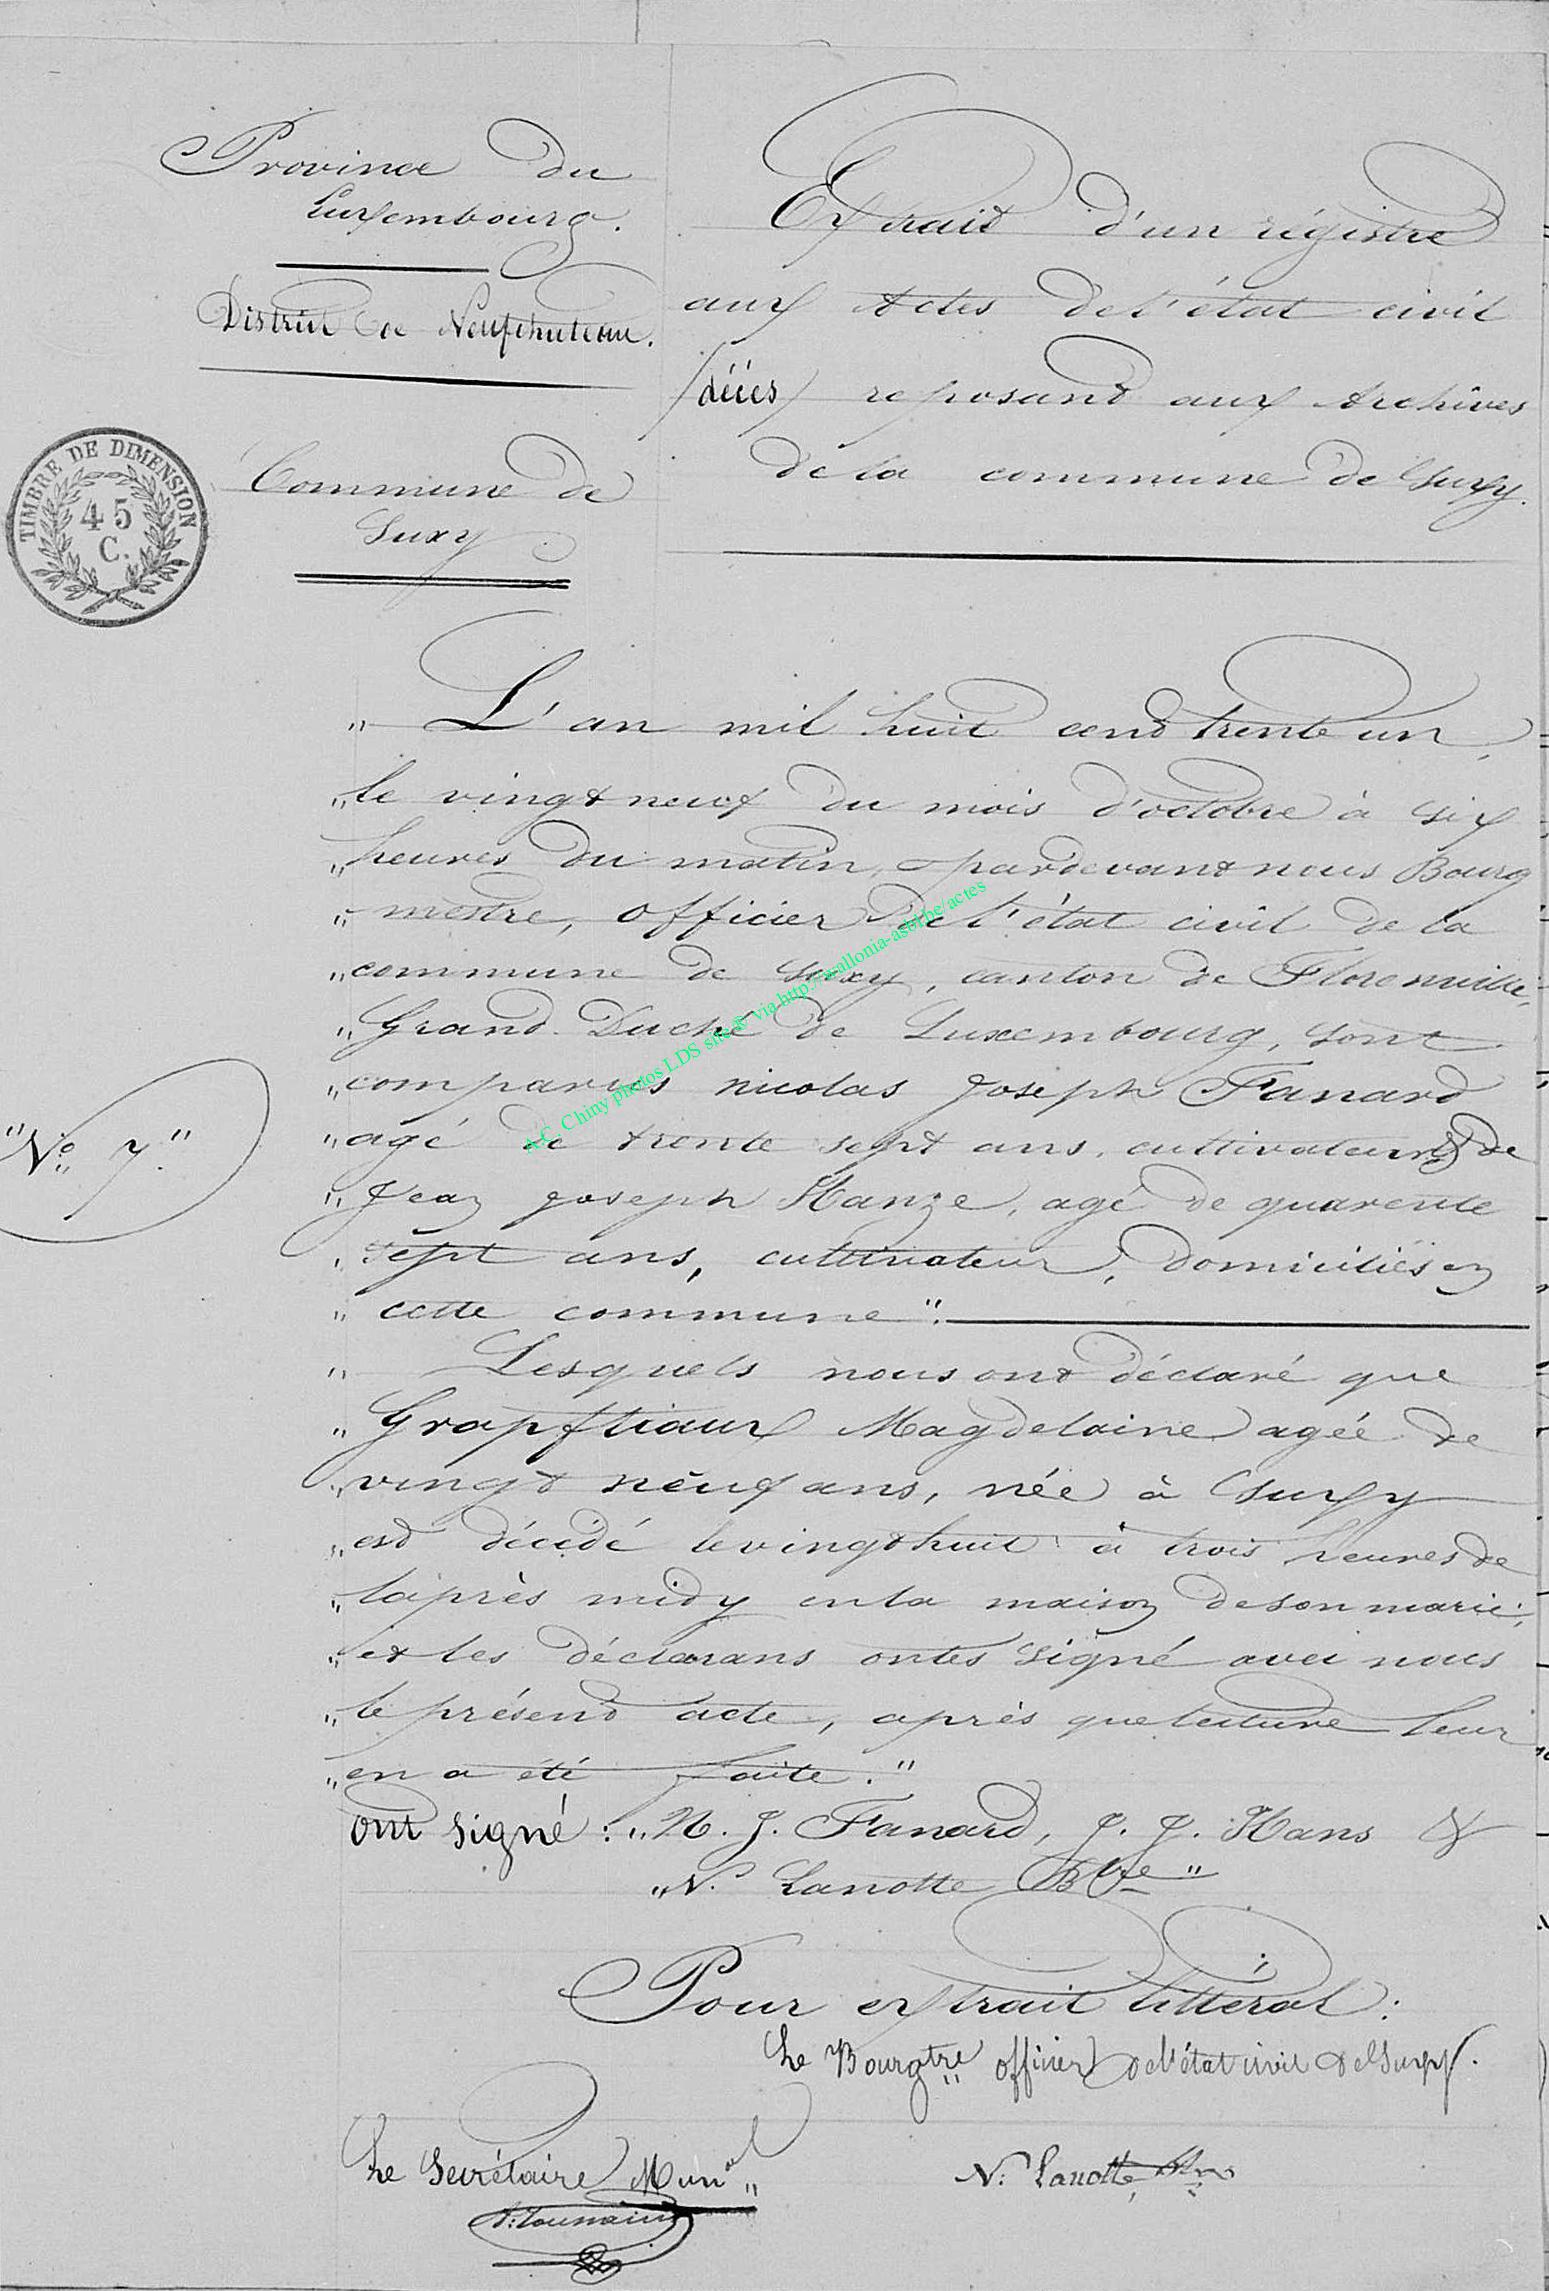 Province du
Luxembourg.
District de Neufchateau.
TIMBRE DE DIMENSION
45
C.
Commune de
Suxy
Extrait d'un régistre
aux Actes de l'état civil
/décès/ reposand aux Archives
de la commune de Suxy.
„ L'an mil huit cend trente un,
„ le vingt neuf du mois d'octobre à six
„ heures du matin, pardevant nous Bourg
„ mestre, officier de l'état civil de la
„ commune de Suxy, canton de Florenville,
„ Grand Duché de Luxembourg, sont
„ comparus nicolas joseph Fanard
„ agé de trente sept ans, cultivateur & de
"No. 7."
„ Jean joseph Hanze, agé de quarente
„ sept ans, cultivateur, domiciliés en
„ cette commune".
„ Lesquels nous ont déclaré que
„ Grapftiaux Magdelaine agée de
„ vingt neuf ans, née à Suxy
„ est décédé le vingt huit à trois heures de
„ l'après midy en la maison de son marie;
„ et les déclarans ontes signé avec nous
„ le présend acte, après que lecture leur
„ en a été faite."
ont signé : „ N. J. Fanard, J. J. Hans &
„ N. Lanotte Btre "
Pour extrait littéral :
Le Bourgtre officier de l'état civil de Suxy.
Le Secrétaire Munal
N. Lanotte, Btre
A.C. Chiny photos LDS site® via http://wallonia-asbl.be/actes